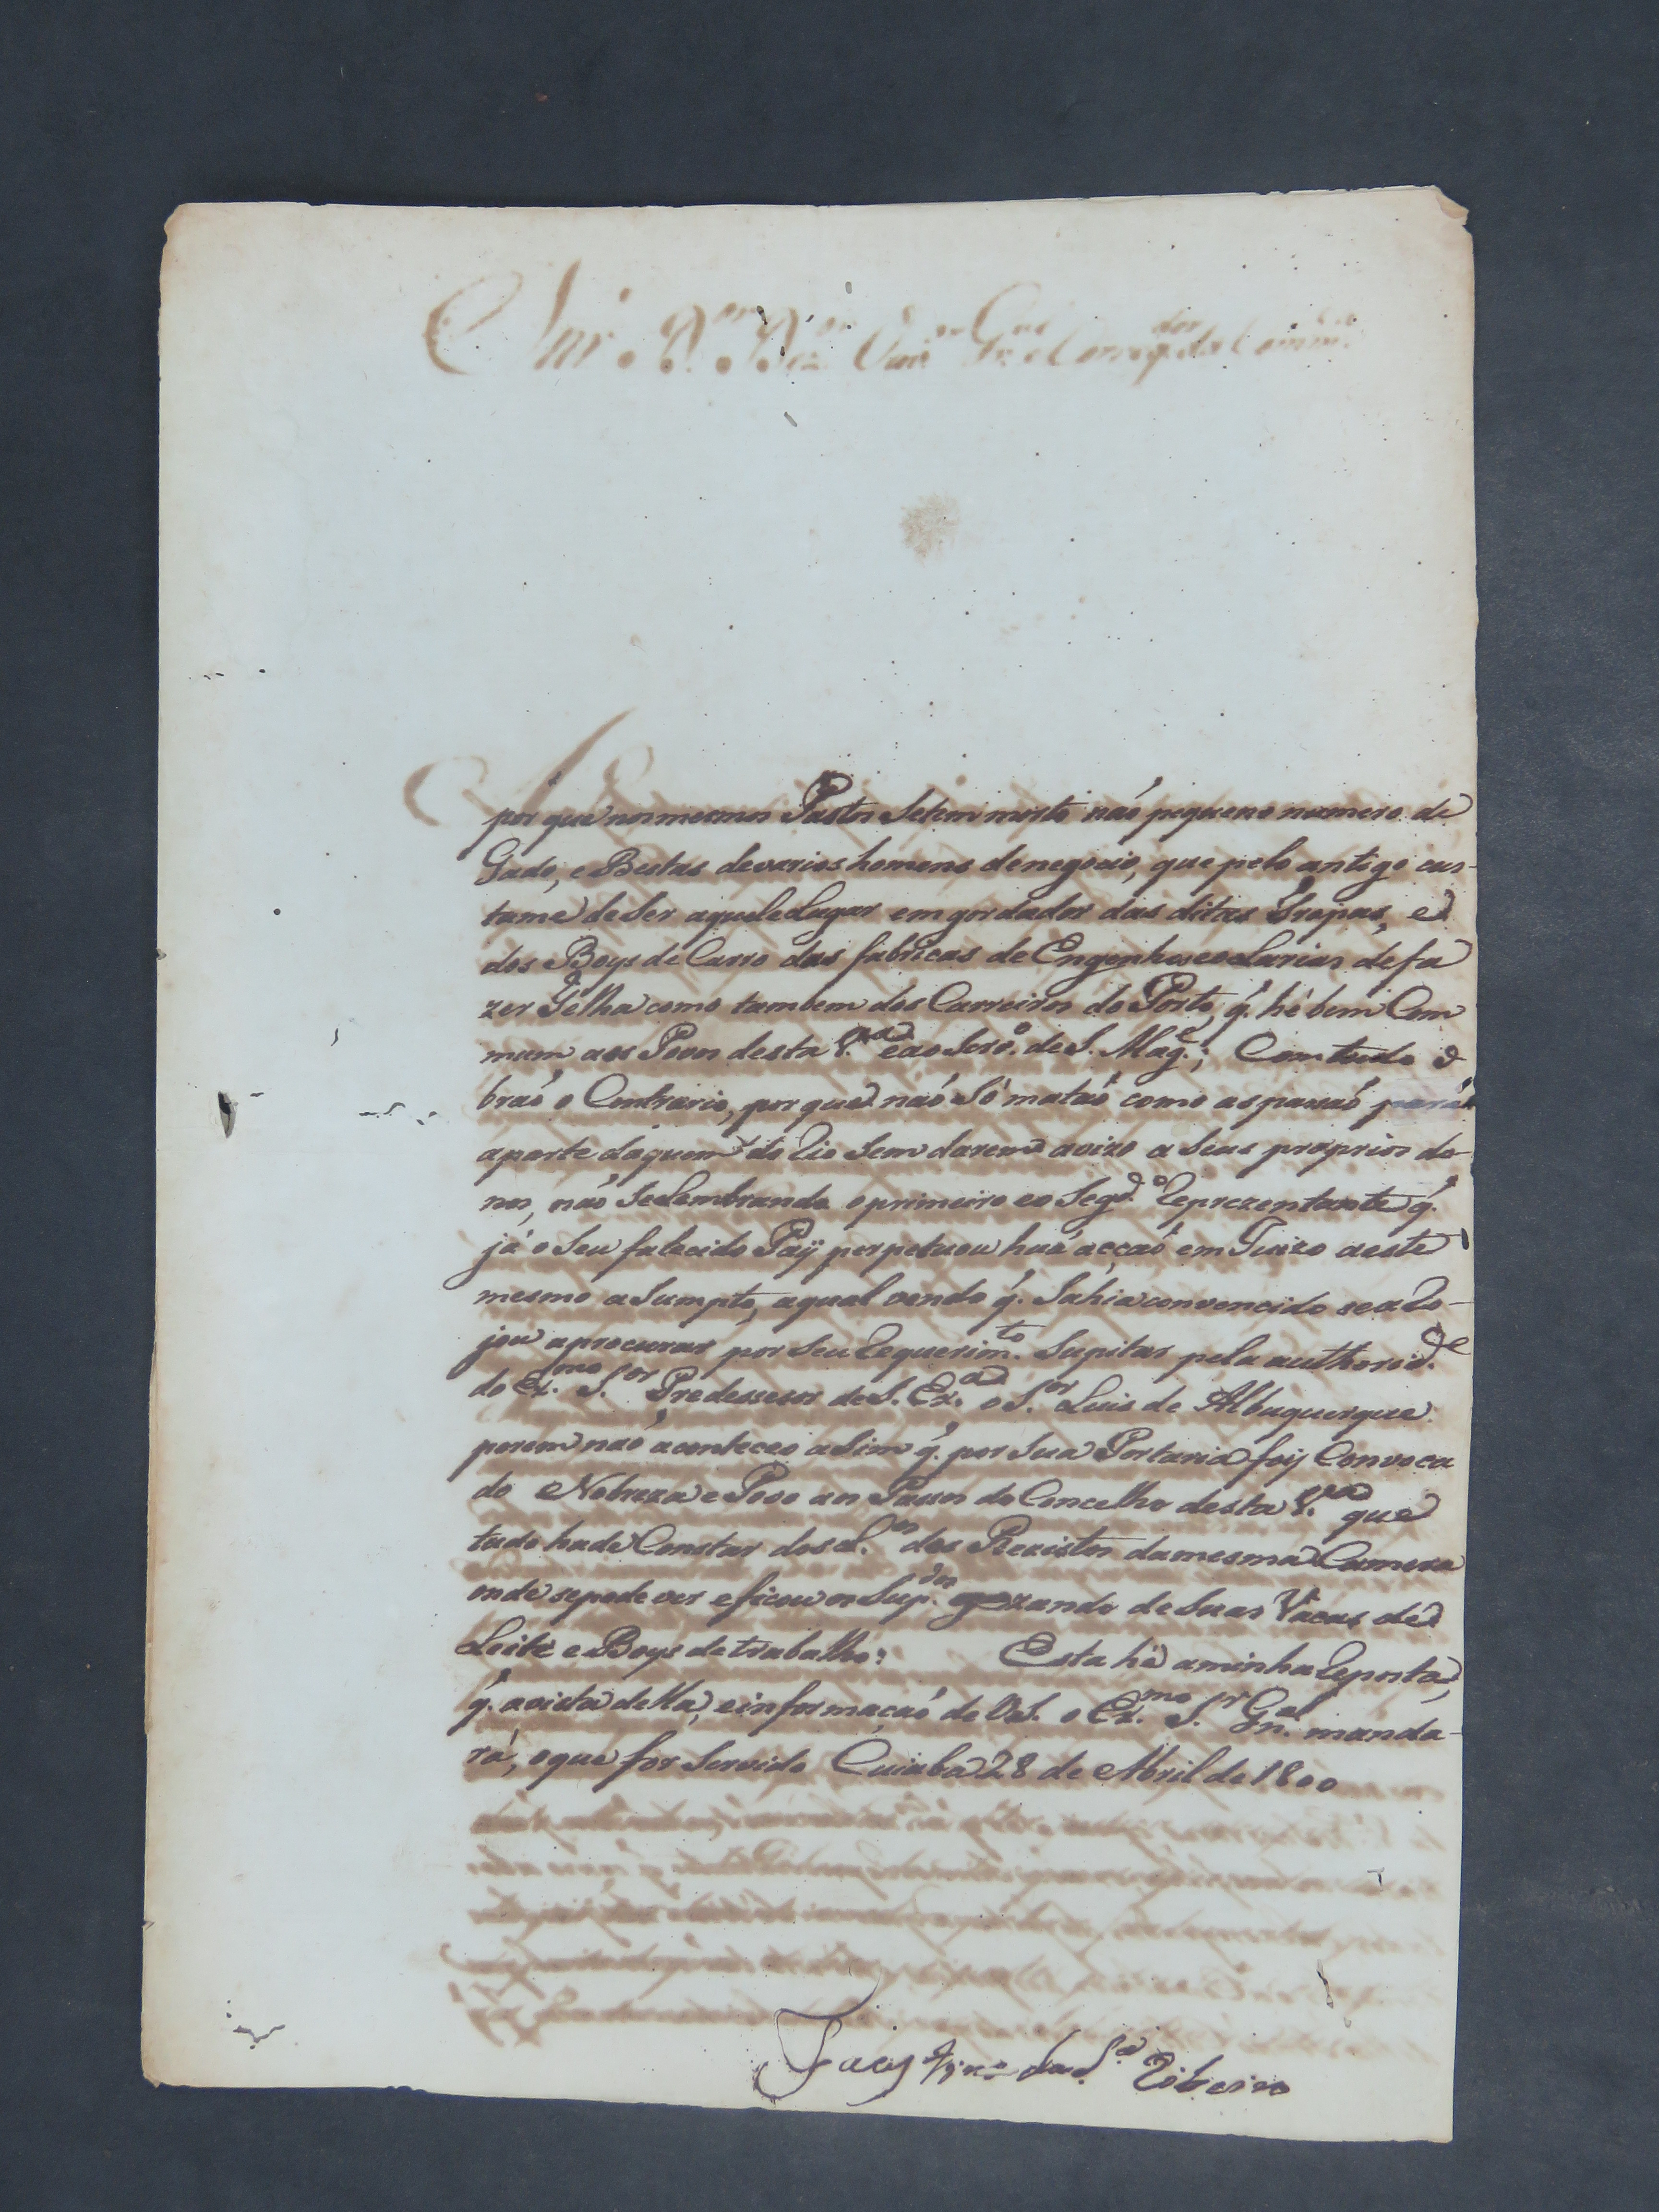 por que nos mesmos Pastos Setem morto não piqueno numero de
Gado, e Bestas devarios homens denegocio, que pelo antigo cus-
tume de Ser aquele Lugar emgordador das ditas Tropas, e
dos Boys de Carro das fabricas de Engenhos eolarias defa
zer Telha como tambem dos Carreiros do Porto, q̃. hé bem Com
mum aos Povos desta V.ª eao Serv.º de S. Mag.e; Com tudo o
braõ o Contrario, por que não Só mataõ como as passaõ para
aparte daquem do Rio Sem darem avizo a Seus proprios do-
nos, não SeLembrando o primeiro eo Seg.do Reprezentante q̃.
já o Seu falecido Pay perpetuou huã acçaõ em Juizo deste
mesmo aSumpto, aqual vendo q̃. Sahia convencido searo-
jou aprocurar por Seu Requerim.to Supitar pela authorid.de
do Ex.mo S.or Predessesor de S. Ex.ª o S.or Luis de Albuquerque
porem não aconteceo aSim q̃. por Sua Portaria foy Convoca
do Nobreza e Povo aos Passos do Concelho desta V.ª que
tudo hade Constar dos L.os dos Rexistos damesma Camera
onde sepode ver eficou os Sup.dos gozando de Suas Vacas de
Leite e Boys detrabalho: Esta hé aminha Reposta,
q̃. avista della, e informaçaõ de VS. o Ex.mo S.r Gn.al manda-
rá, oque for Servido Cuiabá 28 de Abril de 1800
da S.ª Ribeiro